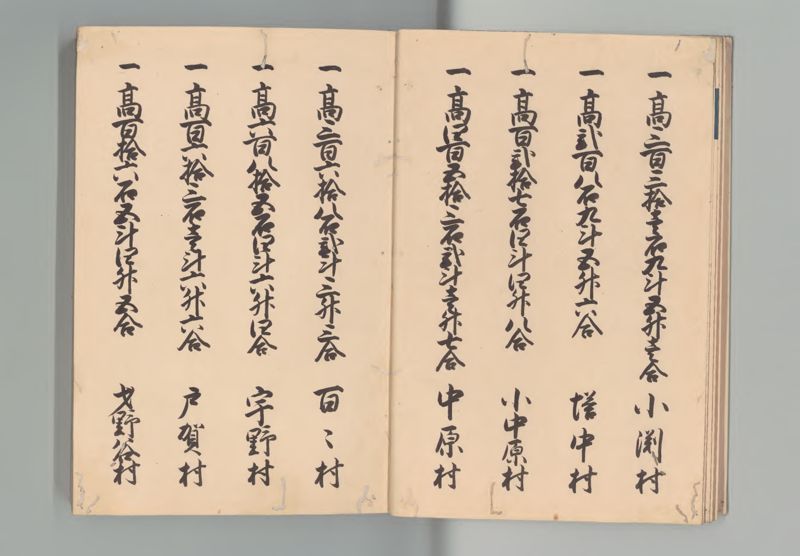 一 高三百三拾壱石九斗五升壱合 小渕村
一 高弐百八石九斗五升六合 塔中村
一 高百弐拾七石四斗四升八合 小中原村
一 高四百五拾三石弐斗壱升七合 中原村
一 高三百六拾八石弐斗三升三合 百々村
一 高六百八拾五石四斗六升四合 宇野村
一 高百六拾三石壱斗六升六合 戸賀村
一 高百拾六石五斗四升五合 野谷村